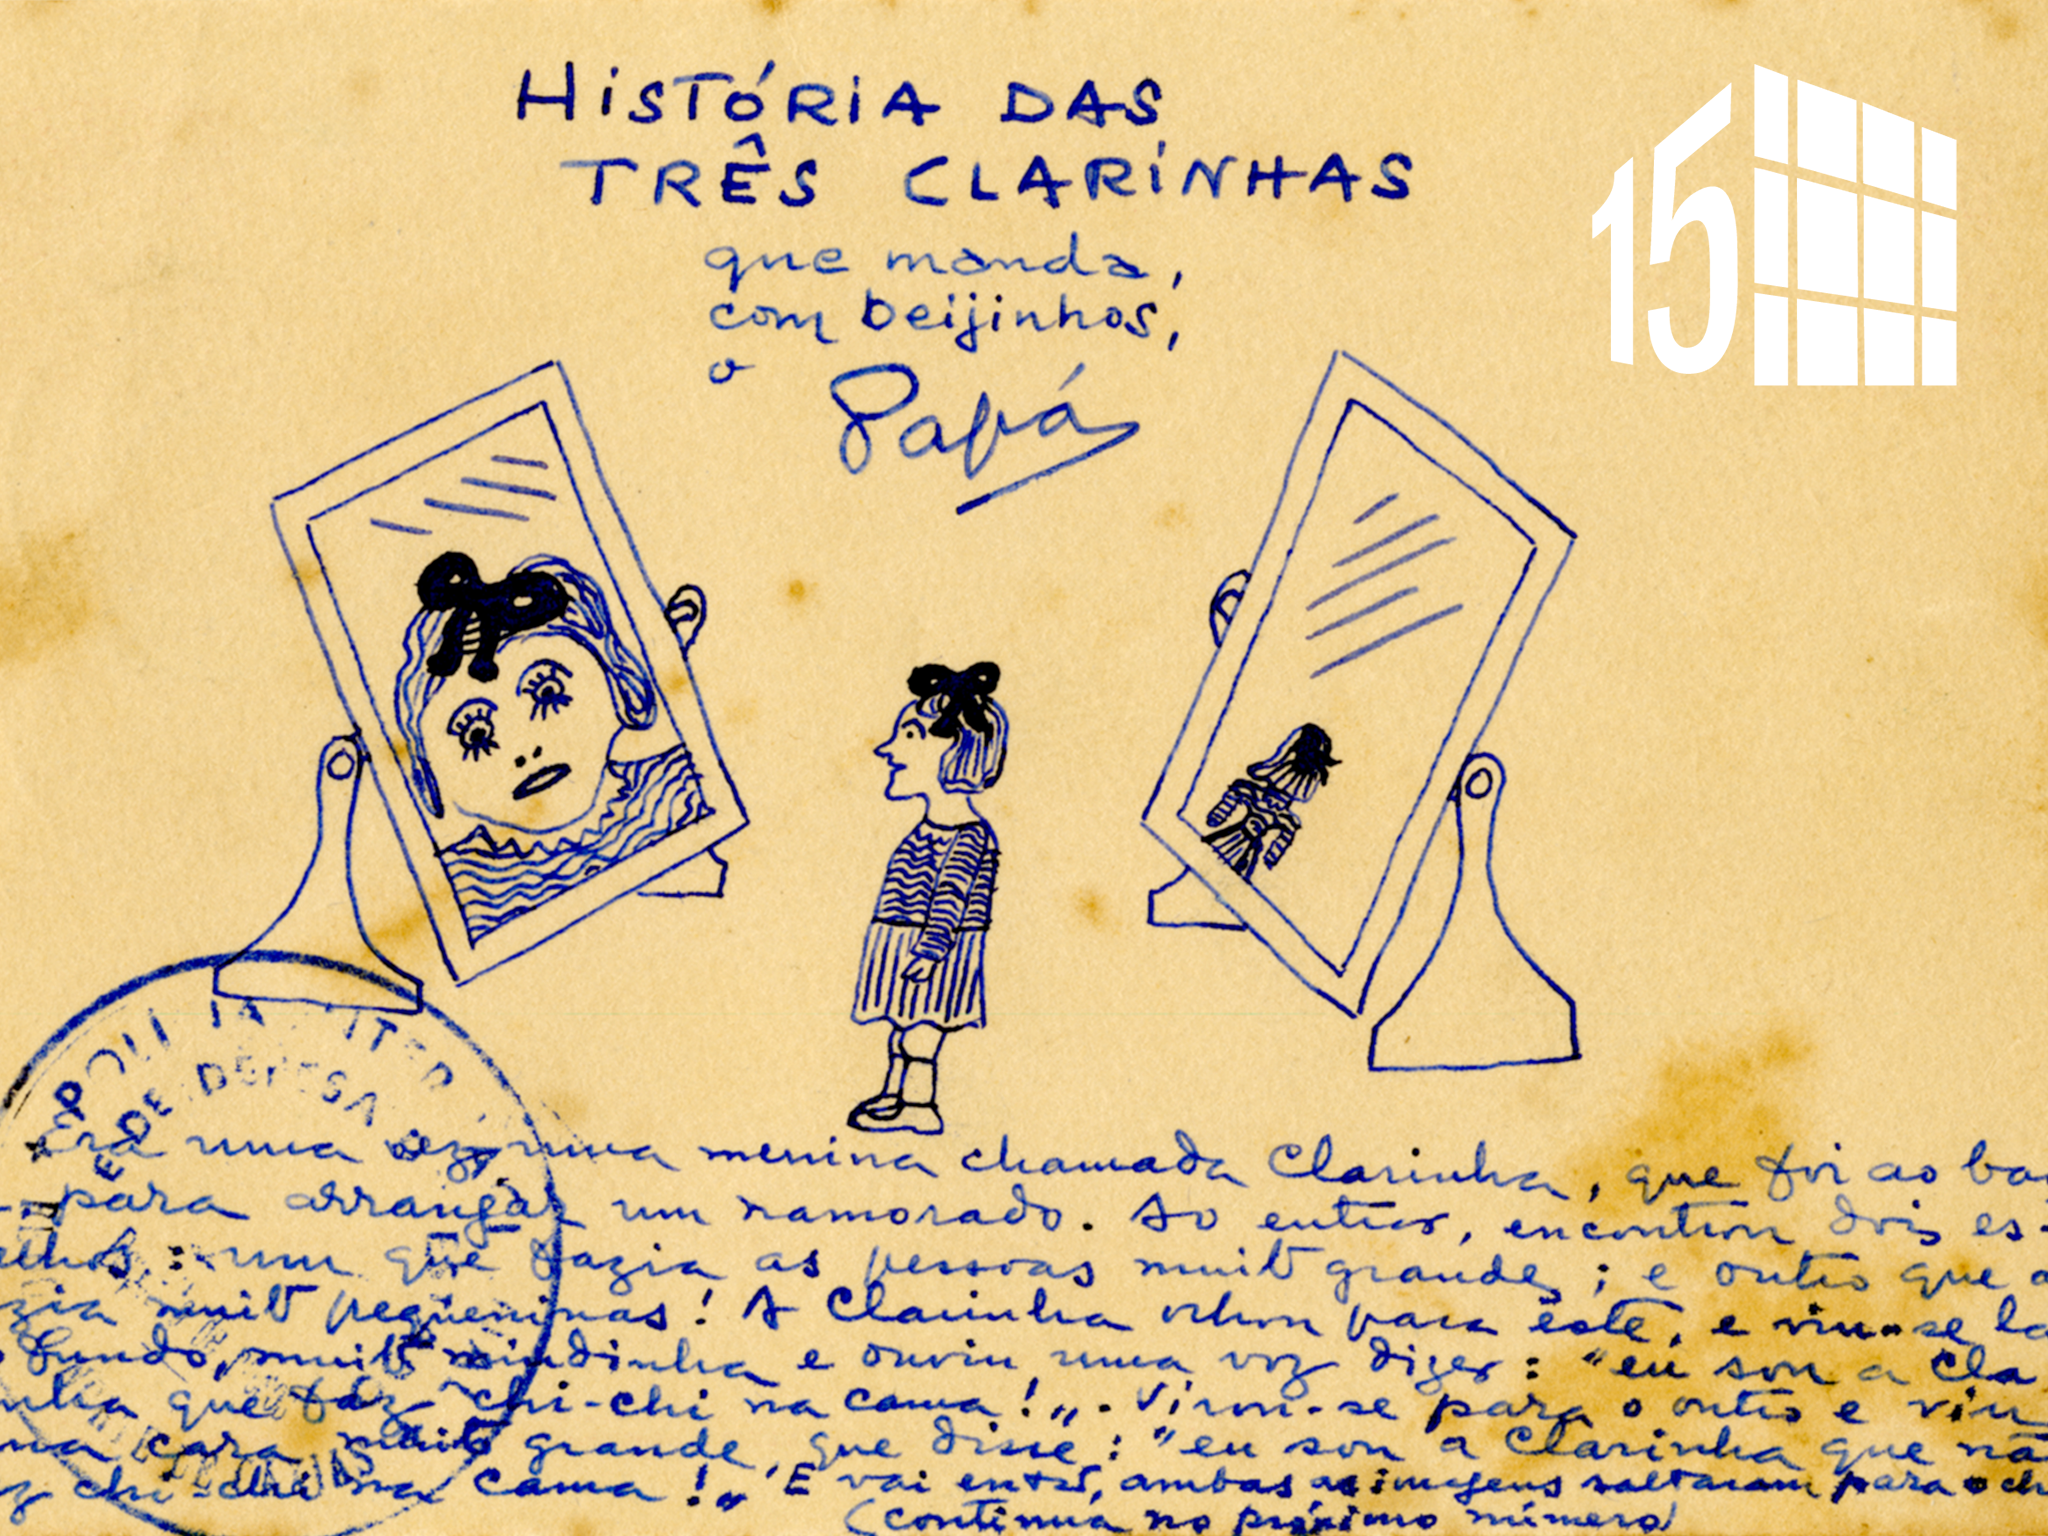 HISTÓRIA DAS
TRÊS CLARINHAS
que manda,
com beijinhos,
o
Papá
15
POLI
DE DEFESA
Era uma vez uma menina chamada Clarinha, que foi ao
para arranjar um namorado. Ao entrar, encontrou dois es-
elhos: um que fazia as pessoas muito grandes; e outro que a
zia muito pequeninas! A Clarinha olhou para este, e viu-se lá
fundo, muito miudinha e ouviu uma voz dizer: "eu sou a Cla
inha que faz chi-chi na cama!". Virou-se para o outro e viu
ma cara muito grande, que disse: "eu sou a Clarinha que nã
z chi-chi na cama!" E vai então, ambas as imagens saltaram para o ch
(continua no próximo número)